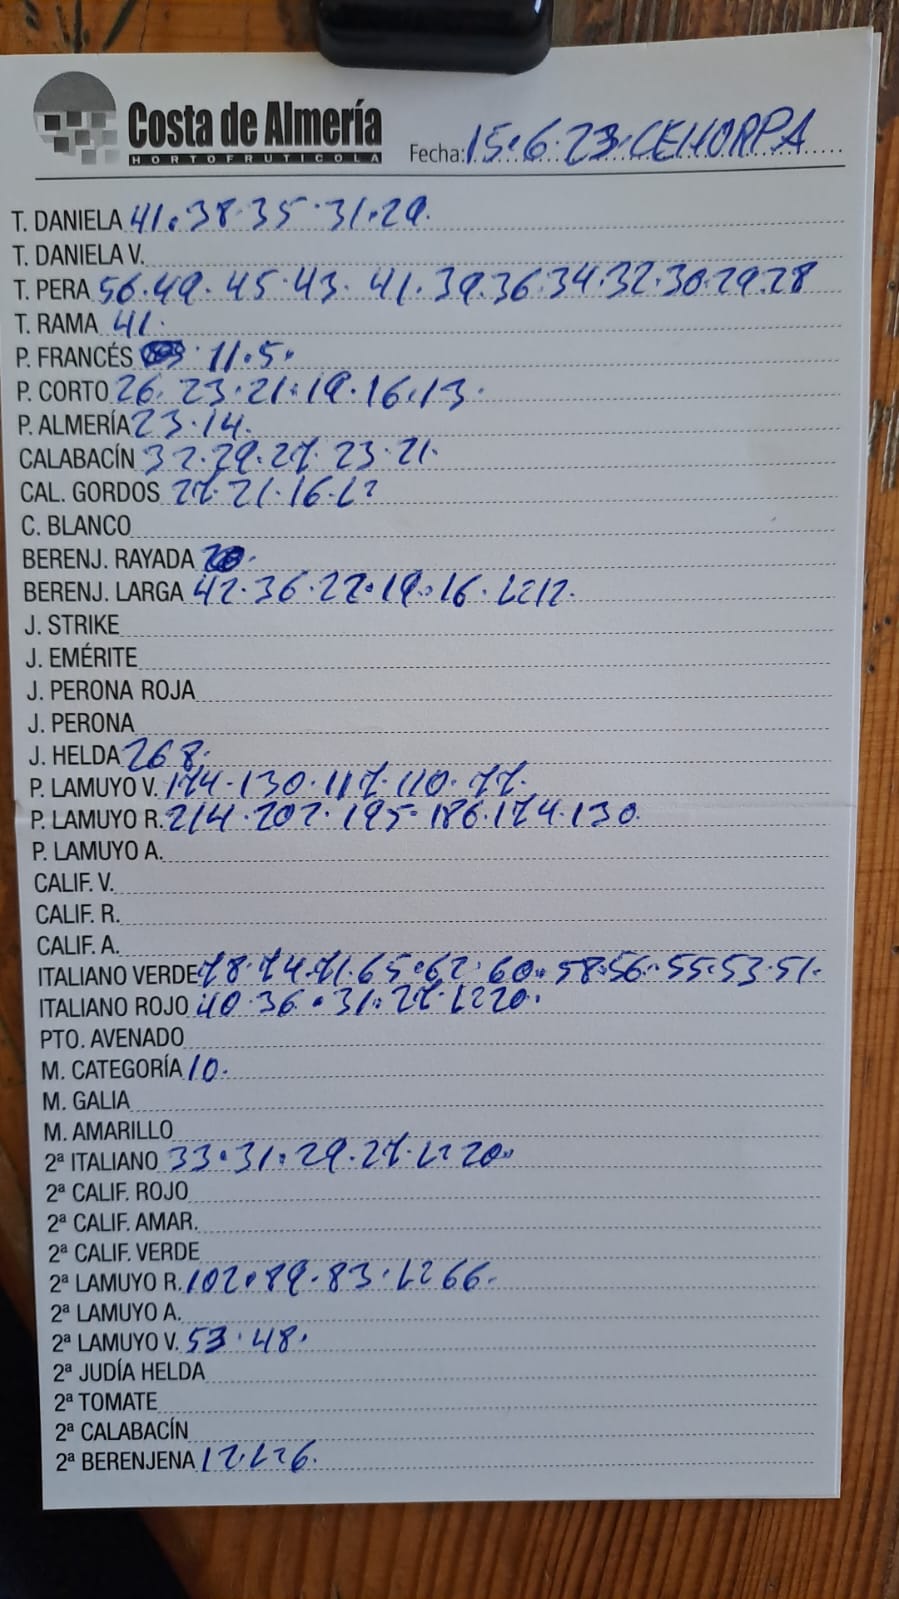 Costa de Almería
HORTOFRUTICOLA
Fecha: 15.6.23.CEHORPA
T. DANIELA 41.38.35.31.29.
T. DANIELA V.
T. PERA 56.49.45.43.41.39.36.34.32.30.29.28
T. RAMA 41.
P. FRANCÉS 11.5.
P. CORTO 26.23.21.19.16.13.
P. ALMERÍA 23.14.
CALABACÍN 32.29.27.23.21.
CAL. GORDOS 27.21.16.L?
C. BLANCO
BERENJ. RAYADA
BERENJ. LARGA 42.36.22.19.16.L212.
J. STRIKE
J. EMÉRITE
J. PERONA ROJA
J. PERONA
J. HELDA 268.
P. LAMUYO V. 174.130.117.110.77.
P. LAMUYO R. 214.202.195.186.174.130.
P. LAMUYO A.
CALIF. V.
CALIF. R.
CALIF. A.
ITALIANO VERDE 78.74.71.65.62.60.58.56.55.53.51.
ITALIANO ROJO 40.36.31.27.L220.
PTO. AVENADO
M. CATEGORÍA 10.
M. GALIA
M. AMARILLO
2ª ITALIANO 33.31.29.27.L220.
2ª CALIF. ROJO
2ª CALIF. AMAR.
2ª CALIF. VERDE
2ª LAMUYO R. 102.89.83.L266.
2ª LAMUYO A.
2ª LAMUYO V. 53.48.
2ª JUDÍA HELDA
2ª TOMATE
2ª CALABACÍN
2ª BERENJENA 12.L26.